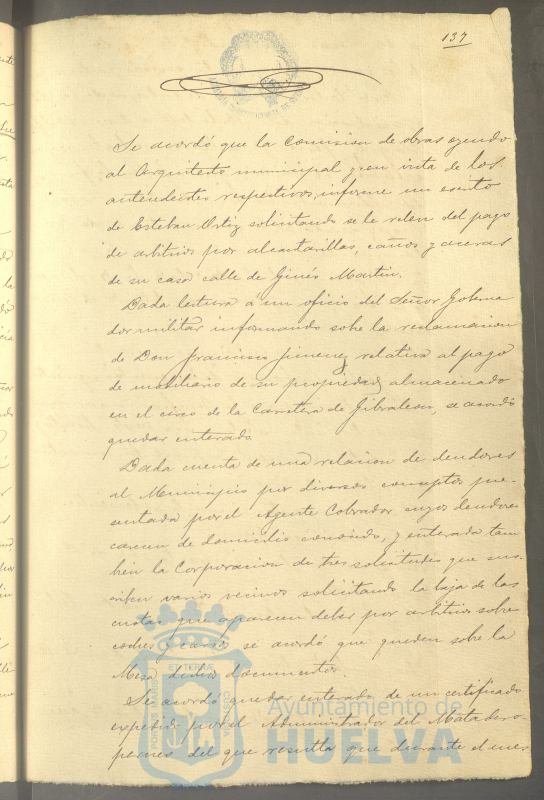 137
Se acordó que la Comision de obras oyendo
al Arquitecto municipal y en vista de los
antecedentes respectivos, informe un escrito
de Esteban Ortiz solicitando se le releve del pago
de arbitrios por alcantarillas, caños y aceras
de su casa calle de Ginés Martin.
Dada lectura a un oficio del Señor Goberna
dor militar informando sobre la reclamacion
de Don Francisco Jimenez relativa al pago
de mobiliario de su propiedad almacenado
en el circo de la Carretera de Gibraleon, se acordó
quedar enterado.
Dada cuenta de una relacion de deudores
al Municipio por diversos conceptos pre-
sentada por el Agente Cobrador cuyos deudores
carecen de domicilio conocido, y enterada tam
bien la Corporacion de tres solicitudes que sus-
criben varios vecinos solicitando la baja de las
cuotas que aparecen deber por arbitrios sobre
coches y carros se acordó que queden sobre la
Mesa dichos documentos.
Se acordó quedar enterado de un certificado
expedido por el Administrador del Matadero
del que resulta que durante el mes
Ayuntamiento de
HUELVA